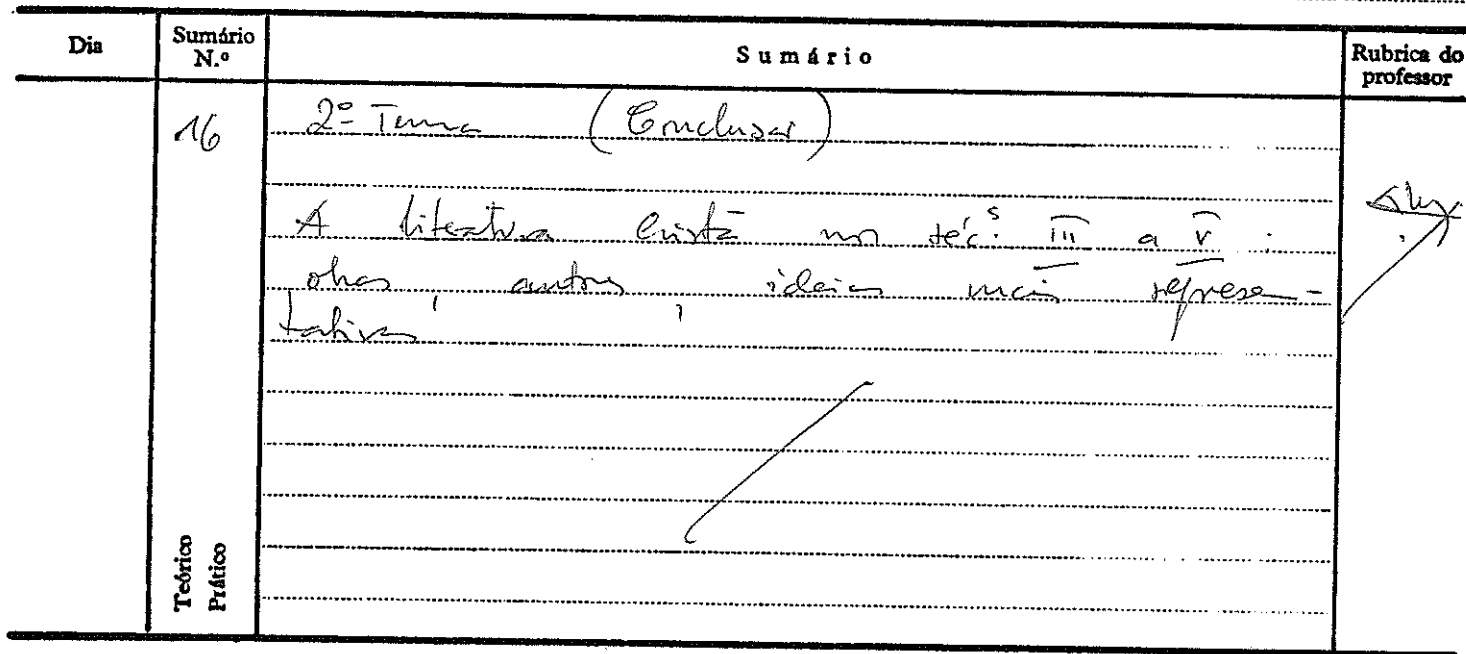 Dia
Sumário N.º
Sumário
Rubrica do professor
16
2º Tema (Conclusão)
A literatura cristã nos séc.s III a V :
obras, autores, ideias mais represen-
tativas
Teórico
Prático